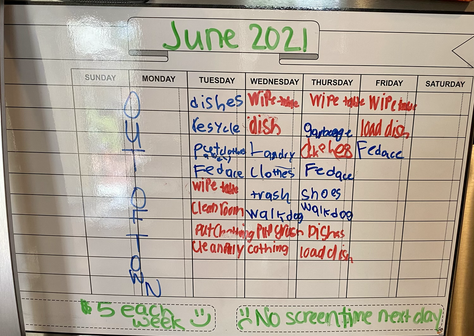 June 2021
SUNDAY MONDAY TUESDAY WEDNESDAY THURSDAY FRIDAY SATURDAY
dishes wipe table wipe table wipe table
resycle dish garbage load dish
put clothes away Landry dishes Fedace
Fedace clothes Fedace
wipe table trash shoes
clean room walk dog walk dog
Dishes
cothing load dish
$5 each week
No screen time next day